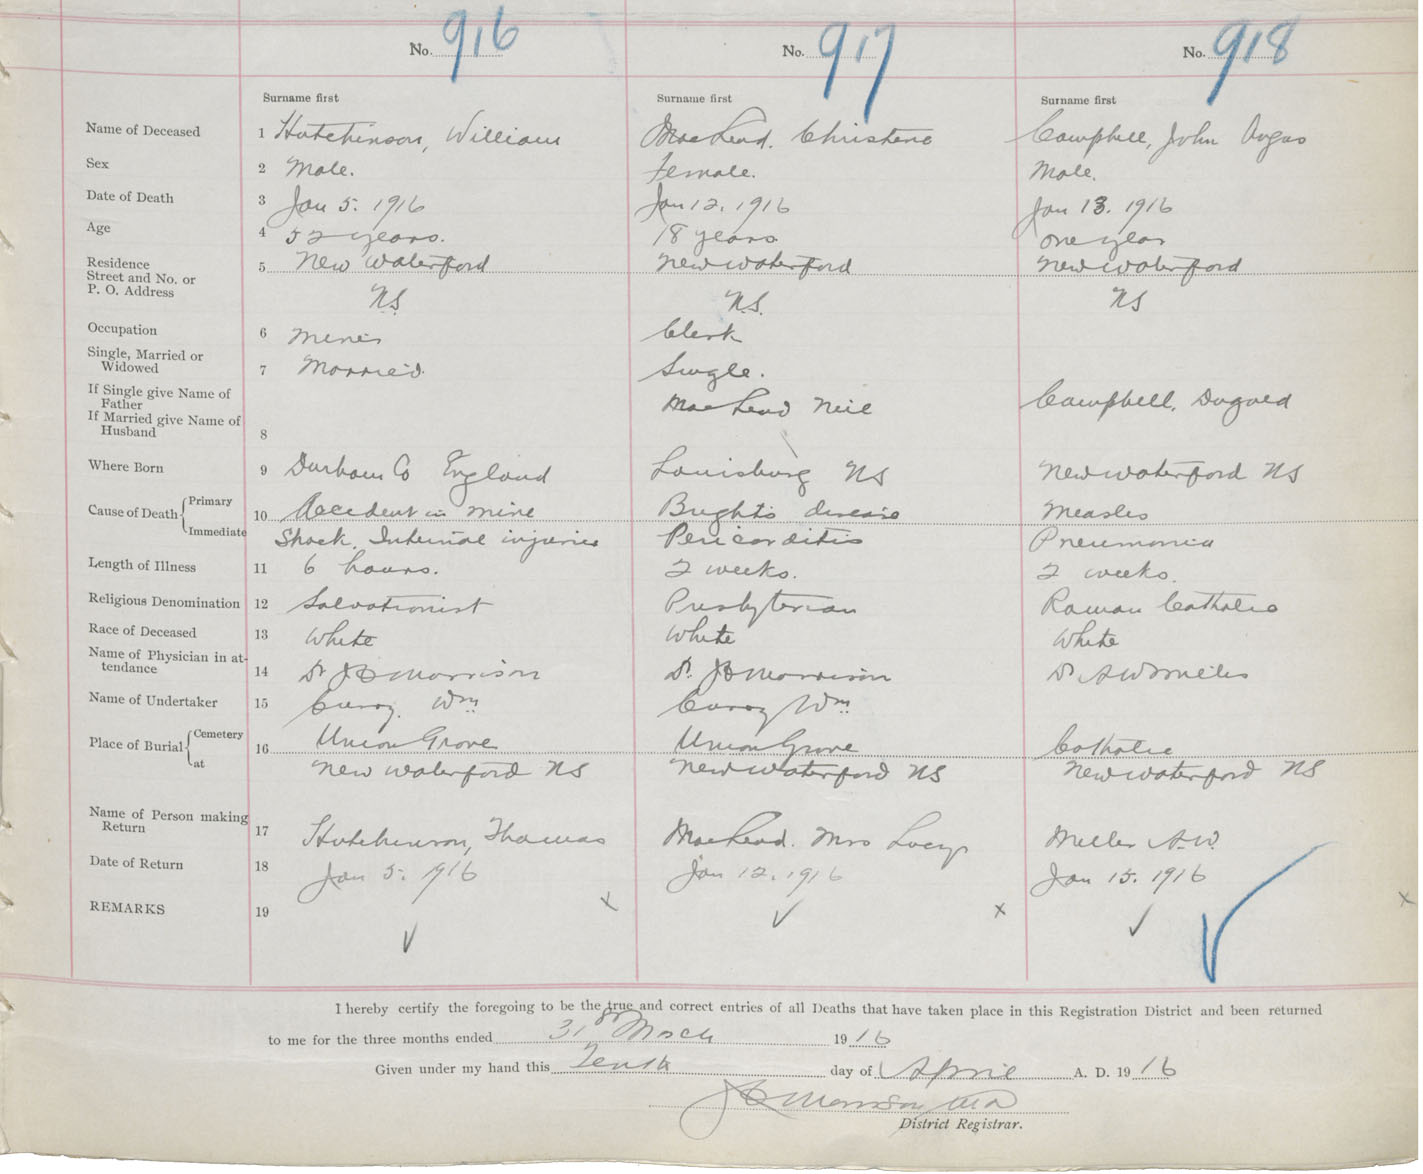 No. 916 No. 917 No. 918
Surname first Surname first Surname first
Name of Deceased 1 Hutchinson, William MacLeod. Christene Campbell, John Angus
Sex 2 Male. Female. Male.
Date of Death 3 Jan 5. 1916 Jan 12. 1916 Jan 13. 1916
Age 4 52 years. 18 years one year
Residence
Street and No. or 5 New Waterford New Waterford New Waterford
P. O. Address NS NS. NS
Occupation 6 Miner Clerk
Single, Married or
Widowed 7 Married. Single.
If Single give Name of
Father MacLeod Neil Campbell, Dugald
If Married give Name of
Husband 8
Where Born 9 Durham Co England Louisburg NS New Waterford NS
Cause of Death Primary 10 Accident in mine Brights disease Measles
Immediate Shock, Internal injuries Pericarditis Pneumonia
Length of Illness 11 6 hours. 2 weeks. 2 weeks.
Religious Denomination 12 Salvationist Presbyterian Roman Catholic
Race of Deceased 13 White White White
Name of Physician in at-
tendance 14 Dr J Morrison Dr. J Morrison Dr A W Miller
Name of Undertaker 15 Wm Wm
Place of Burial Cemetery 16 Union Grove Union Grove Catholic
at New Waterford NS New Waterford NS New Waterford NS
Name of Person making
Return 17 Hutchinson, Thomas MacLeod. Mrs Lucy Miller A.W.
Date of Return 18 Jan 5. 1916 Jan 12. 1916 Jan 15. 1916
REMARKS 19
I hereby certify the foregoing to be the true and correct entries of all Deaths that have taken place in this Registration District and been returned
to me for the three months ended 31st March 1916
Given under my hand this Tenth day of April A. D. 1916
Morrison MD
District Registrar.